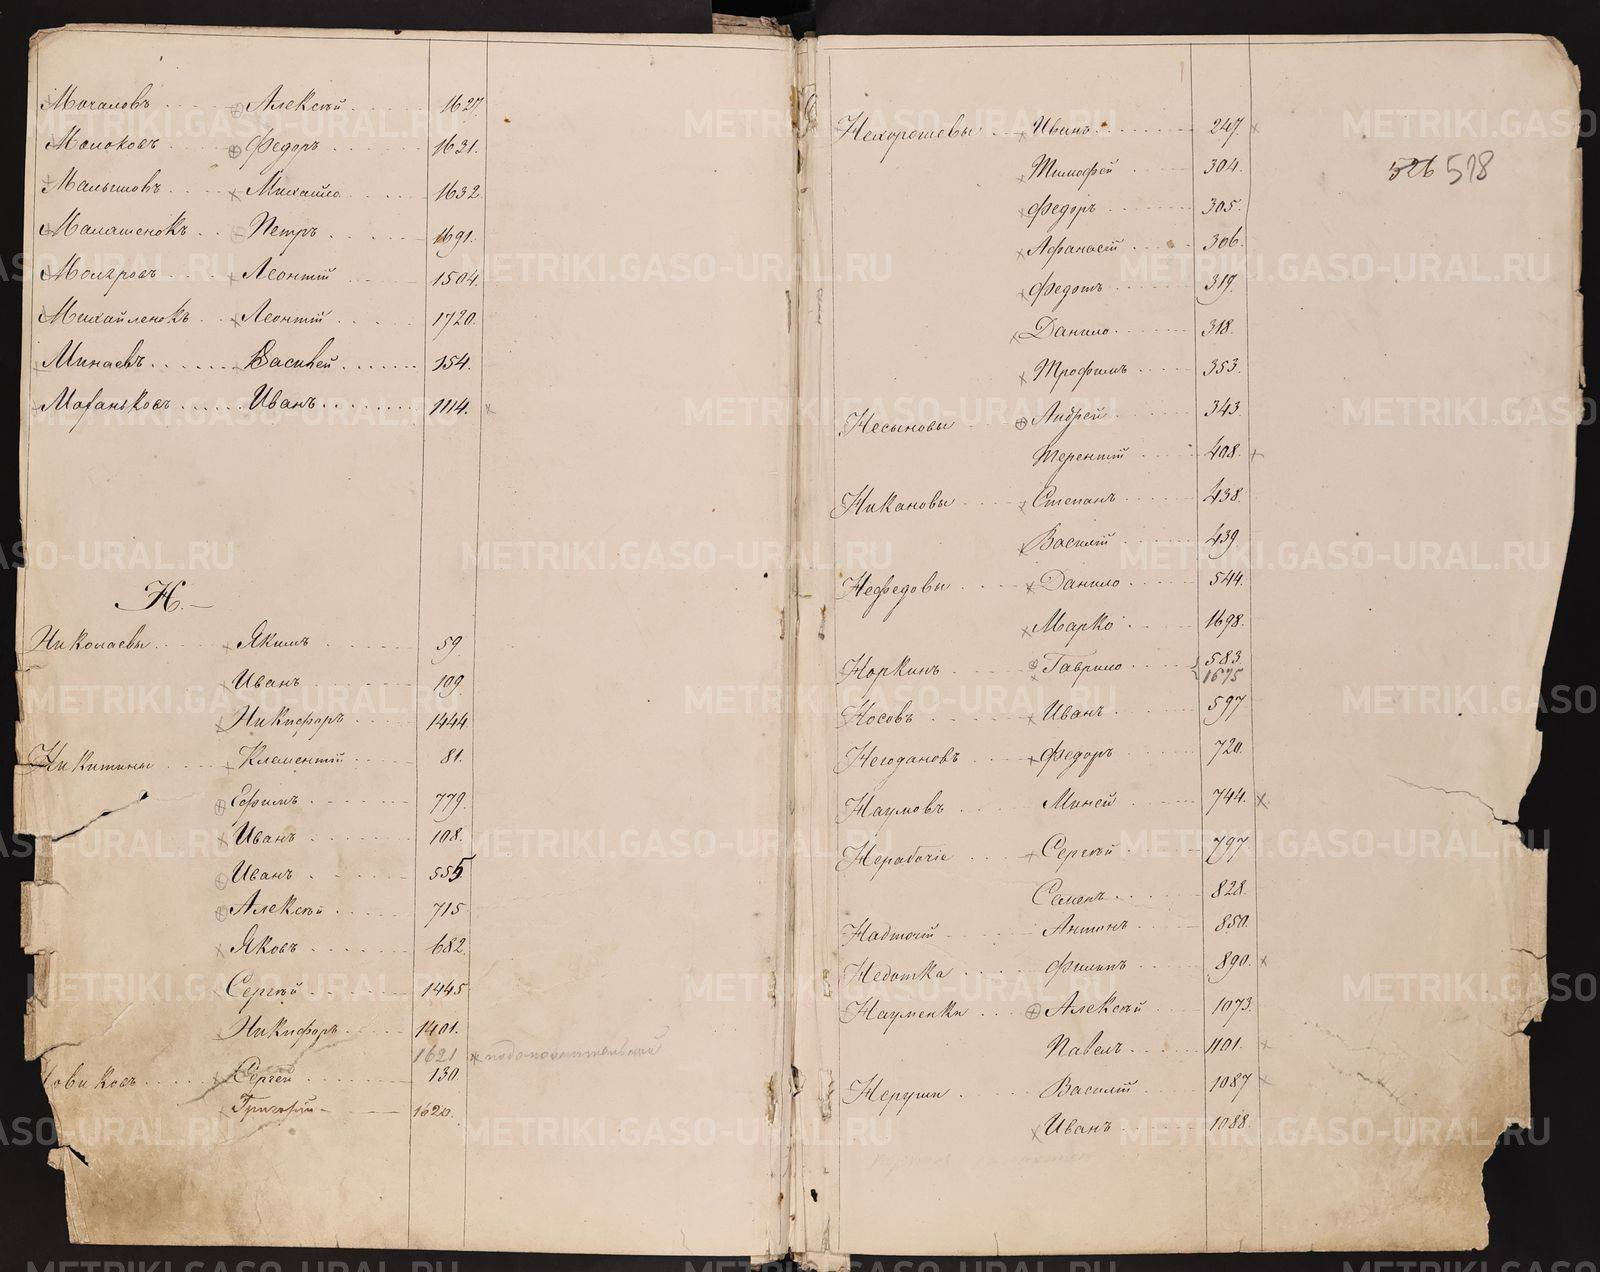 Мочаловъ Алексѣй 1627.
Молоковъ Федоръ 1631.
Малышовъ Михайло 1632
Малашенокъ Петръ 1691.
Леонтій 1504.
Михайленокъ Леонтій 1720.
Минаевъ Василей 154.
Иванъ 1114.
Н.
Николаевы Якимъ 59
Иванъ 109
Никифоръ 1444
Никитины Клементій 81.
Ефимъ 779
Иванъ 108.
Иванъ 555
Алексѣй 715
Яковъ 682
Сергѣй 1445
Никифоръ 1401.
1621
овиковъ Сергей 130
Григорій 1620.
Нехорошевы Иванъ 247
526 518
Тимофей 304
Федоръ 305.
Афанасій 306
Федотъ 319.
Данило 318.
Трофимъ 353.
Несыновы Андрей 343
Терентій 408.
Никановы Степанъ 438
Василій 439
Нефедовы Данило 544.
Марко 1698.
Норкинъ Гаврило 583
1675
Носовъ Иванъ 597
Негодановъ Федоръ 720.
Наумовъ Миней 744.
Нерабочіе Сергѣй 797
Семенъ 828.
Надточій Антонъ 850.
Недотка Филипъ 890.
Науменки Алексѣй 1073.
Павелъ 1101.
Неруши Василій 1087
Иванъ 1088.
METRIKI.GASO-URAL.RU